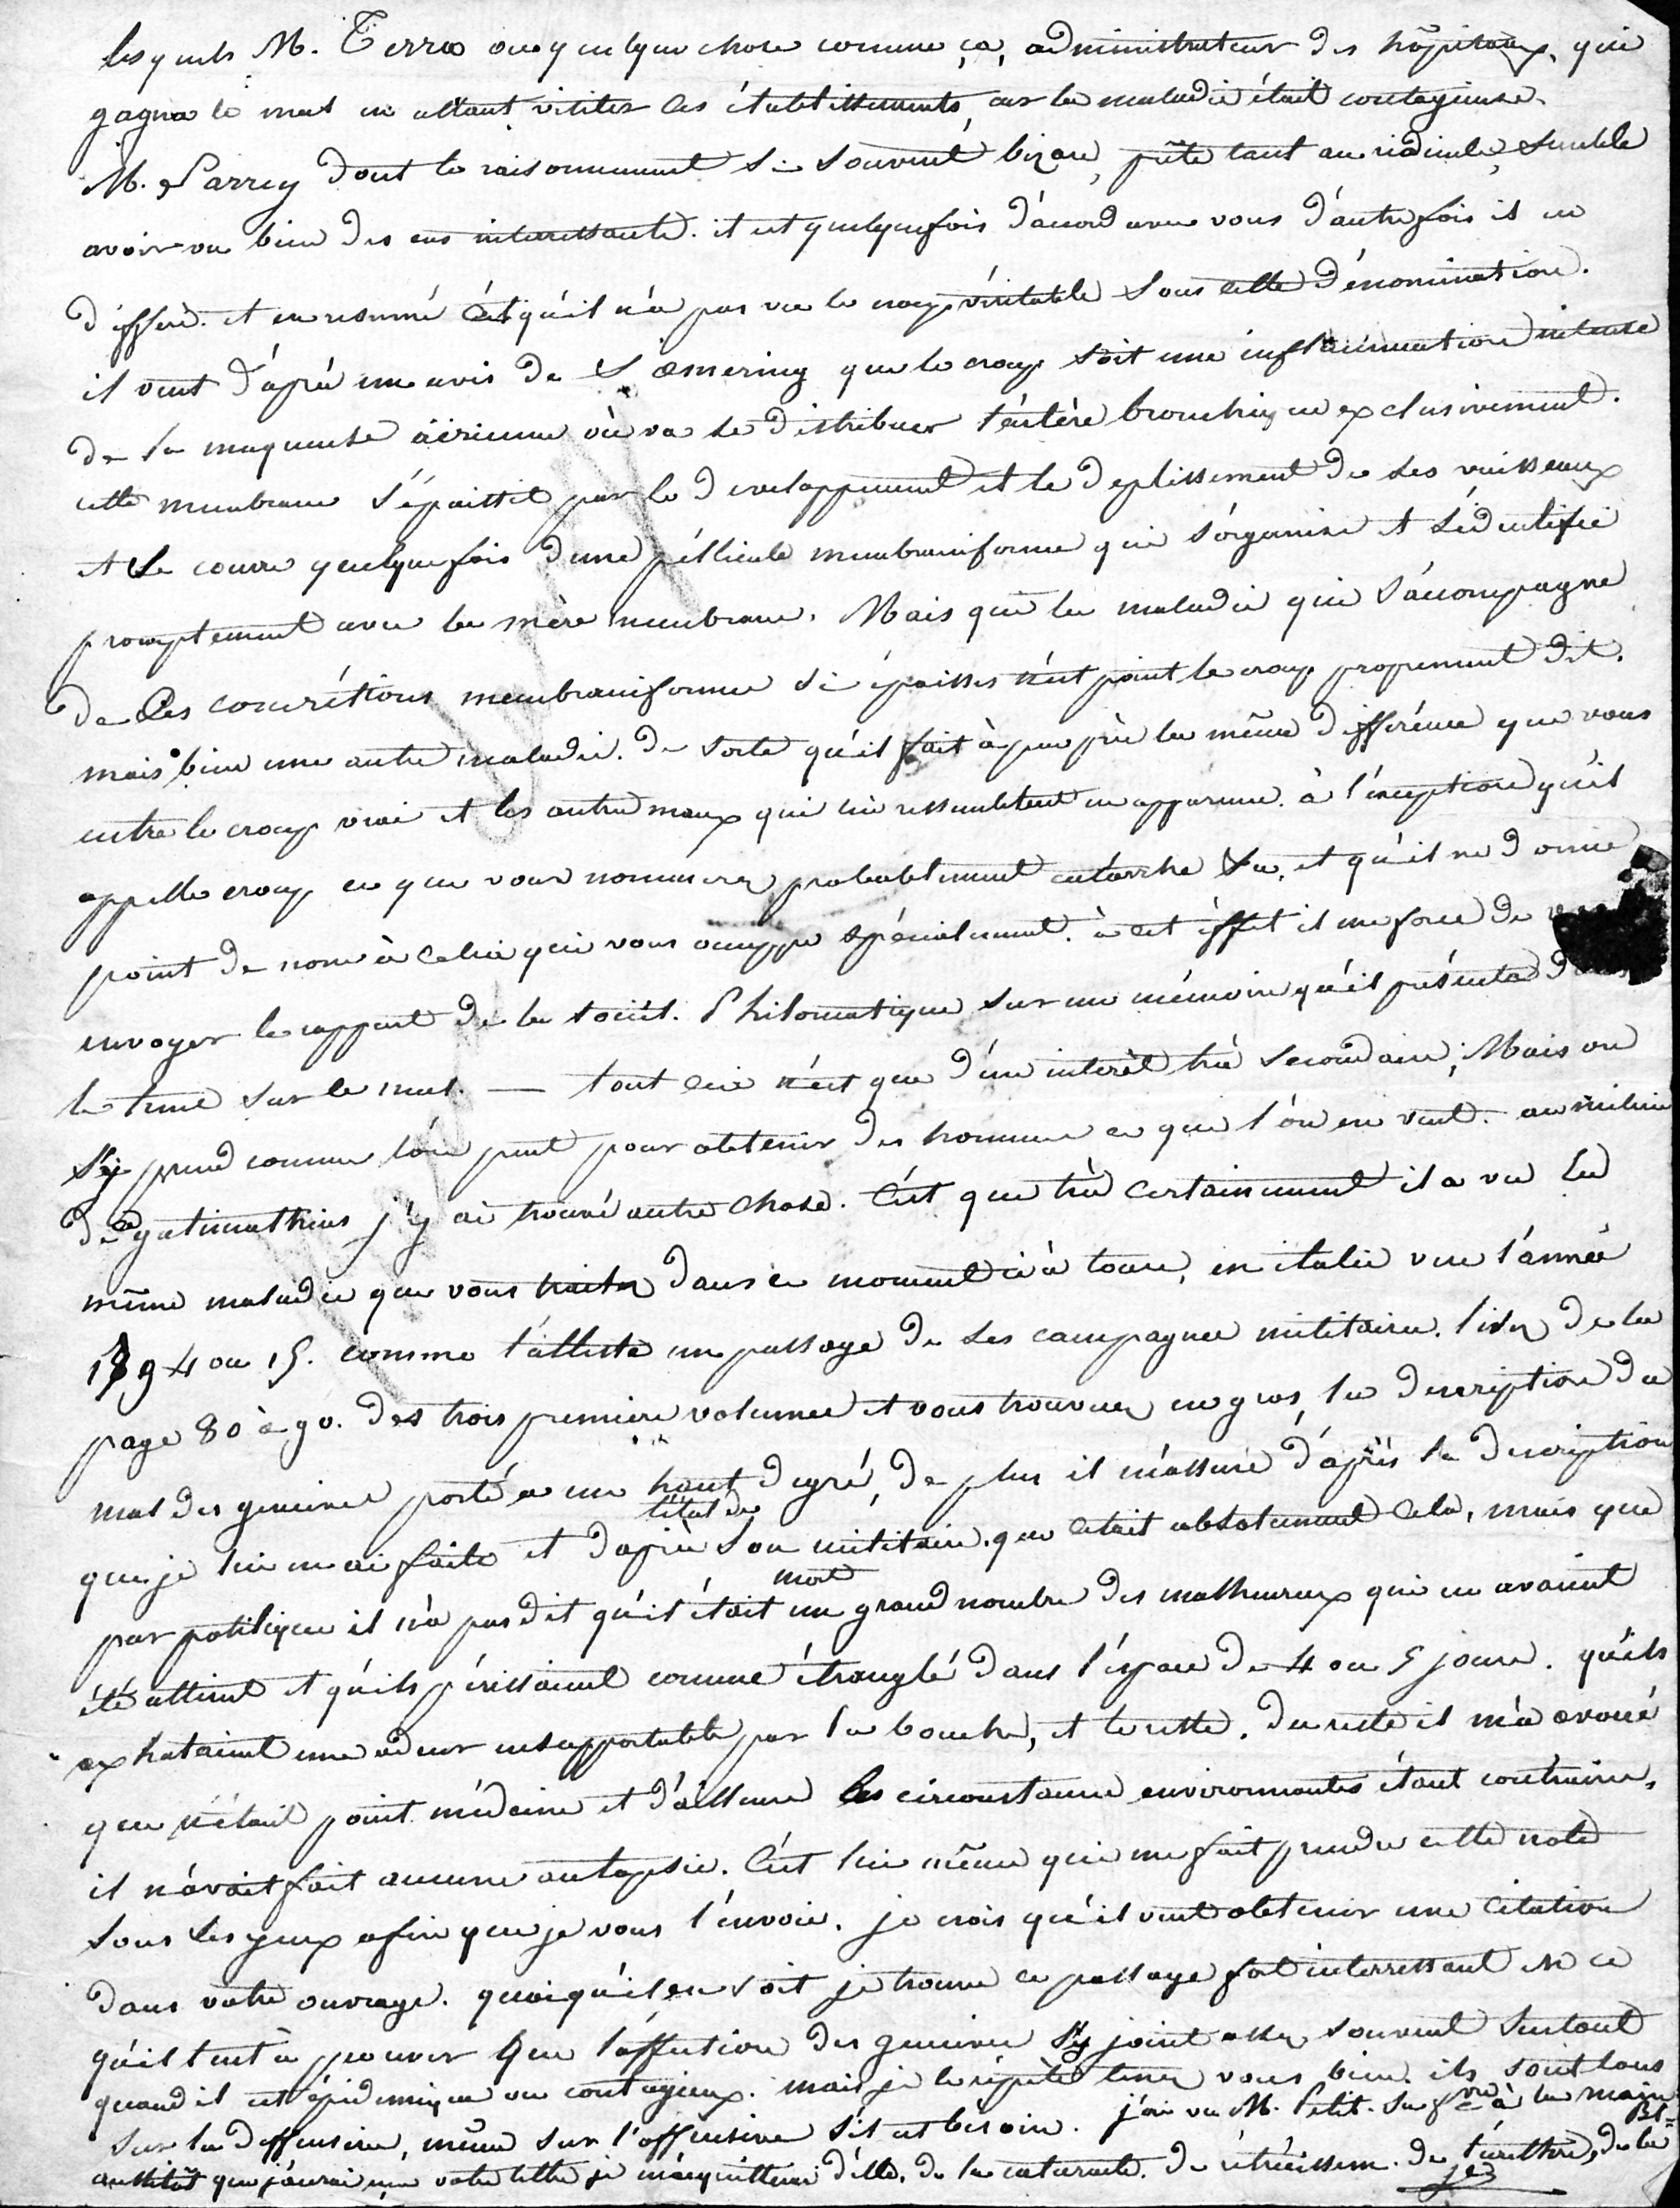 lesquels M. Terra ou quelque chose comme ça, administrateur des hôpitaux, qui
gagna le mal en allant visiter les établissements, car la maladie était contagieuse.
M. Larrey dont le raisonnement si souvent bizare, prête tant au ridicule, semble
avoir vu bien des cas interressants. il est quelquefois d'accord avec vous d'autrefois il en
diffère. et en resumé c'est qu'il n'a pas vu le croup véritable sous cette dénomination.
il veut d'après un avis de Sœmering que le croup soit une inflammation intense
de la muqueuse aérienne où va se distribuer l'artère bronchique exclusivement.
cette membrane s'épaissit par le developpement et le deplissement de ses vaisseaux
et se couvre quelquefois d'une péllicule membraniforme qui s'organise et s'identifie
promptement avec la mère membrane. Mais que la maladie qui s'accompagne
de ces concrétions membraniformes si épaisses n'est point le croup proprement dit.
mais bien une autre maladie. de sorte qu'il fait à peu près la même différence que vous
entre le croup vrai et les autres maux qui lui ressemblent en apparence. à l'exception qu'il
appelle croup ce que vous nommerez probablement catarrhe &a. et qu'il ne donne
point de nom à celui qui vous occuppe spécialement. à cet éffet il me force de
envoyer le rapport de la sociét. Philomatique sur un mémoire qu'il présenta
le tems sur le mal. — tout ceci n'est que d'un interèt très secondaire; Mais on
s'y prend comme l'on peut pour obtenir des hommes ce que l'on en veut. au milieu
de galimathias j'y ai trouvé autre chose. C'est que très certainement il a vu la
même maladie que vous traitez dans ce moment ci à tours, en italie vers l'année
1794 ou 15. comme l'atteste un passage de ses campagnes militaires. lisez de la
page 80 à 90. des trois premiers volumes et vous trouverez en gros, la description du
mal des gencives porté à un haut degré, de plus il m'assure d'après la description
que je lui en ai faite et d'après l'état de son militaire. que c'était absolument cela, mais que
par politique il n'a pas dit qu'il était mort un grand nombre des malheureux qui en avaient
été atteint et qu'ils périssaient comme étranglé dans l'éspace de 4 ou 5 jours. qu'ils
exhalaient une odeur insupportable par la bouche, et le reste. du reste il m'a avoué
que n'étant point médecin et d'ailleurs les circonstances environnantes étant contraires,
il n'avait fait aucune autopsie. C'est lui même qui me fait prendre cette note
sous ses yeux afin que je vous l'envoie. je crois qu'il veut obtenir une citation
dans votre ouvrage. quoiqu'il en soit je trouve ce passage fort interressant en ce
qu'il tent à prouver que l'affection des gencives s'y joint assez souvent surtout
quand il est épidemique ou contagieux. mais je le répète tenez vous bien. ils sont tous
sur la deffensive, même sur l'offensive s'il est besoin. j'ai vu M. Petit. à la main
aussitôt que j'aurai votre lettre je m'acquitterai d'elle. de la cataracte. de rétrécissem. de l'urèthre, de la